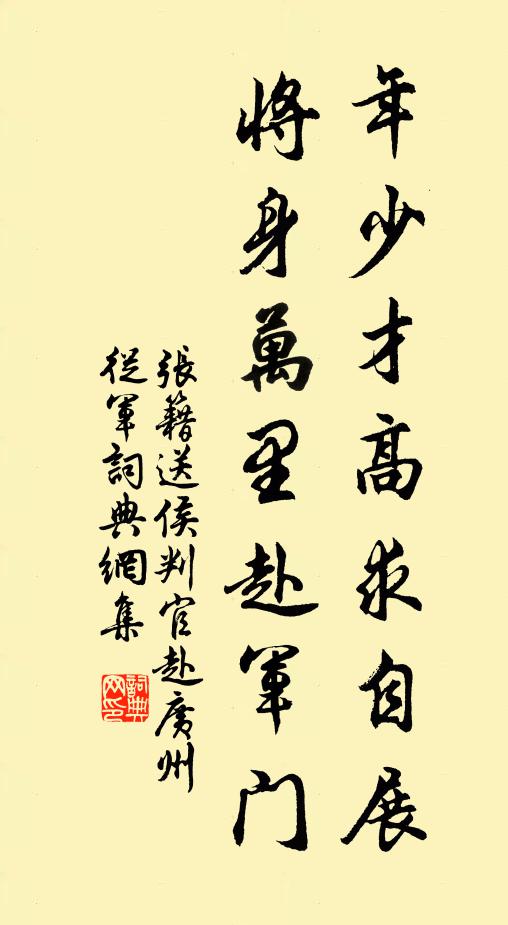 年少才高求自展
將身萬里赴軍門
張籍送侯判官赴廣州
從軍詞典網集
詞典網印